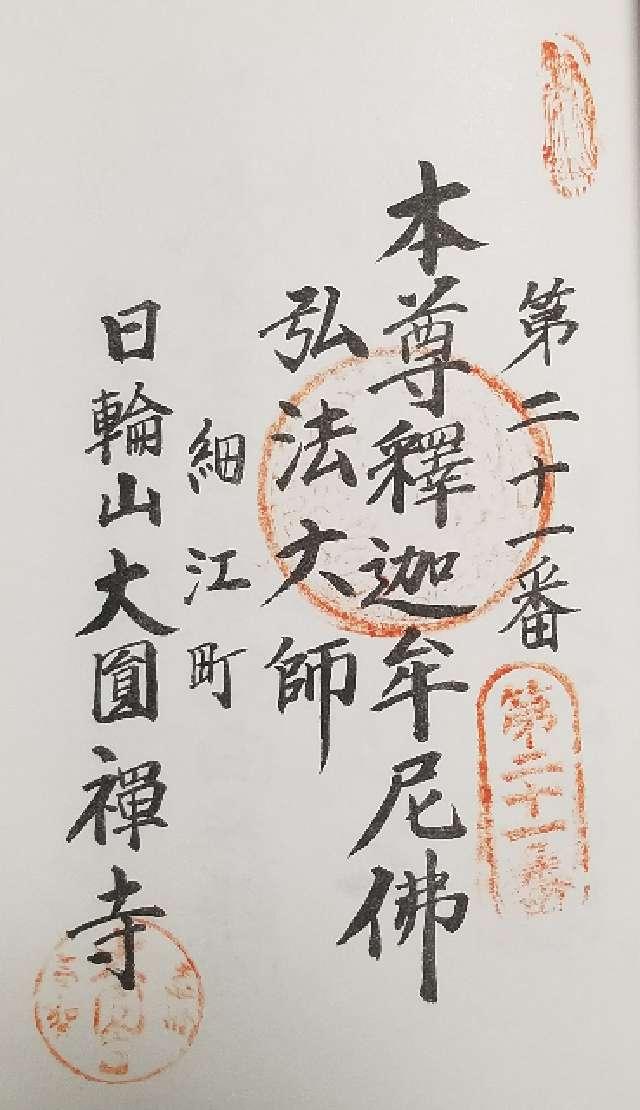 第二十一番
第二十一番
本尊釋迦牟尼佛
弘法大師
細江町
日輪山大圓禪寺